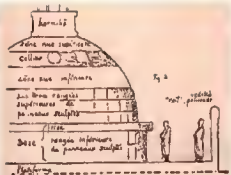 harmikā
zone nue supérieure
Collier
zône nue inférieure
Les trois rangées
supérieures de
panneaux sculptés
frise
Base
rangée inférieure
de panneaux sculptés
Fig 2